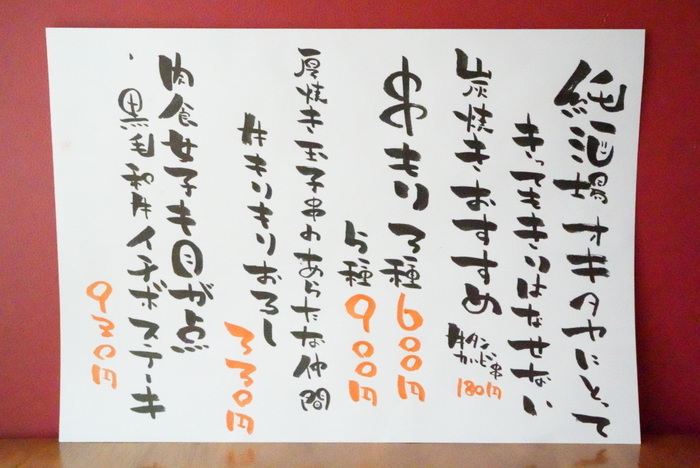 純酒場オキタヤにとって
きってもきりはなせない
炭焼きおすすめ
牛タン
カルビ串
180円
串もり3種 600円
5種 900円
厚焼き玉子串のあらたな仲間
牛もりもりおろし
330円
肉食女子も目が点
黒毛和牛イチボステーキ
930円